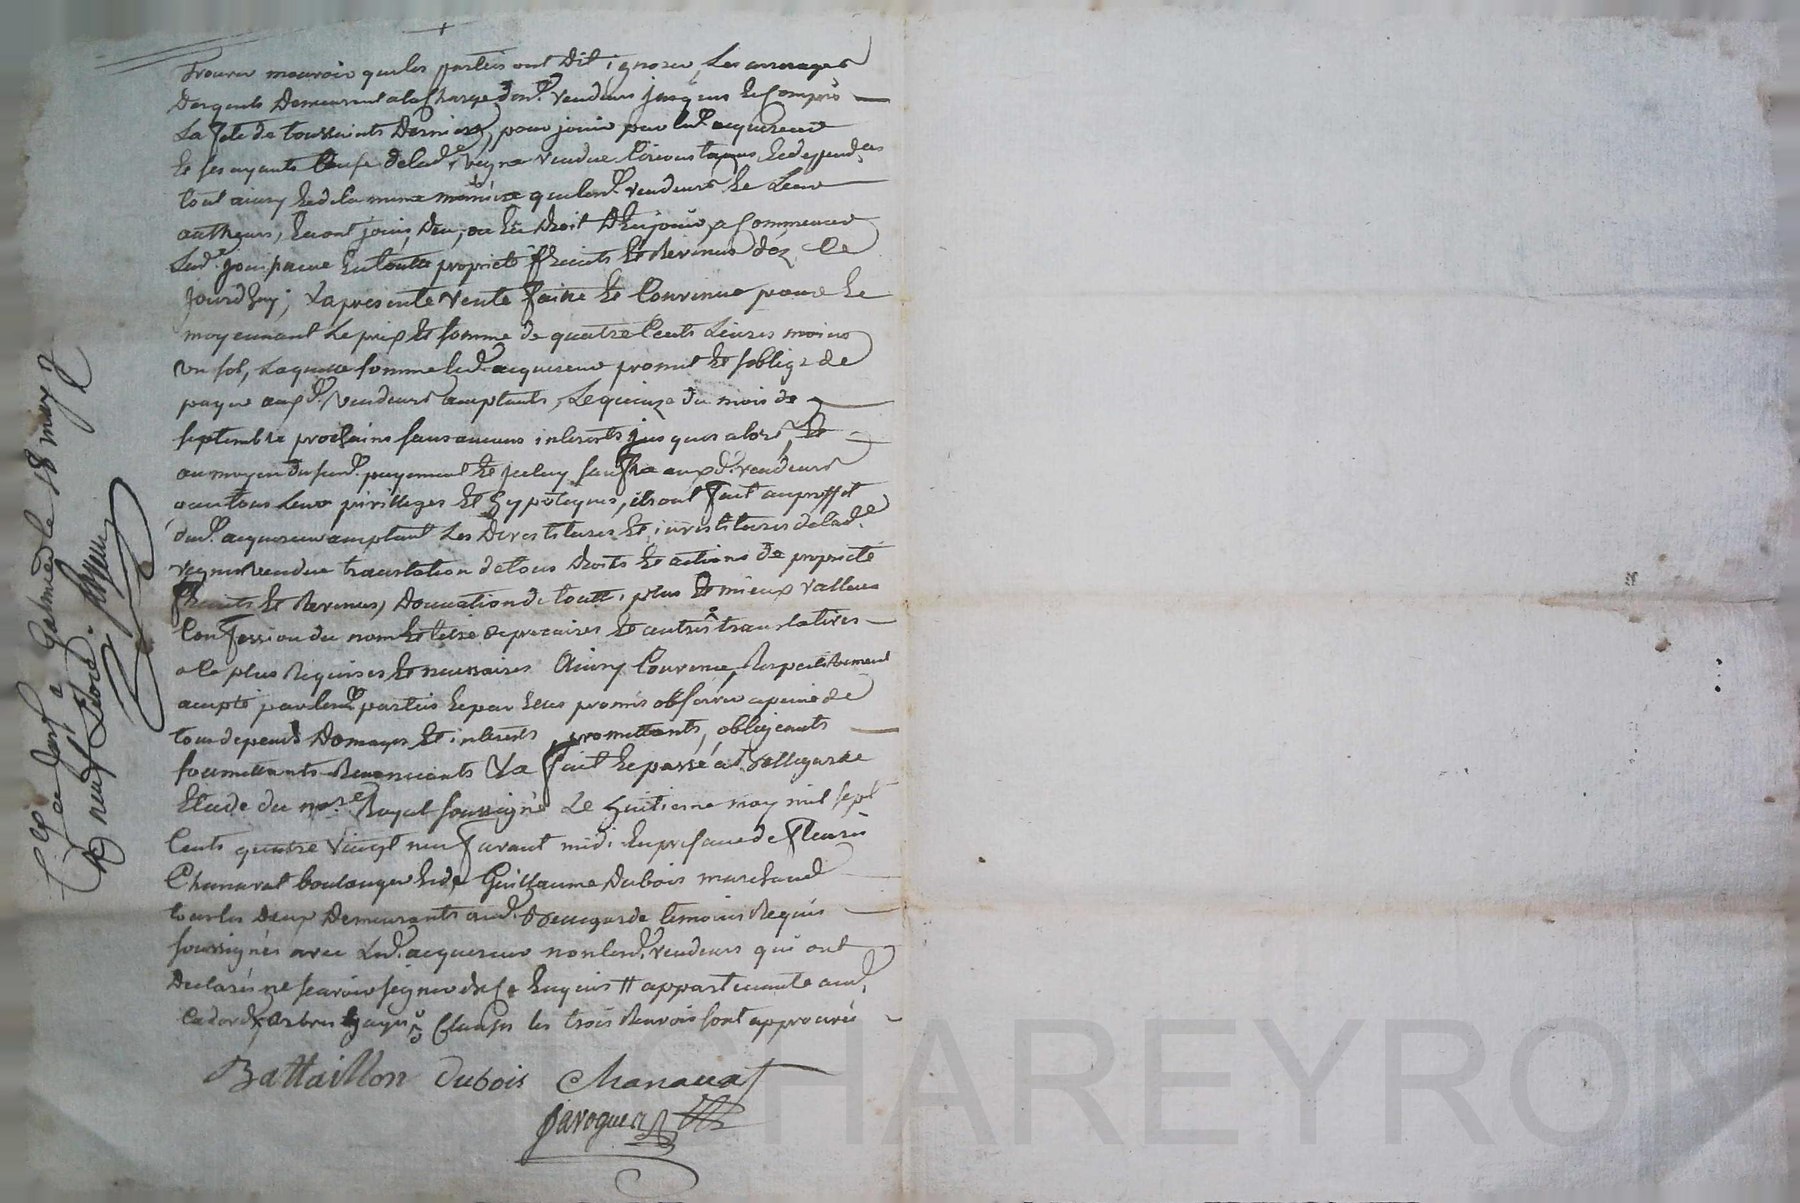 trouver mouvoir que les parties ont dit ignorer, les arrerages
d'argents demeurent a la charge desd. vendeurs jusques et compris
La fete de toussaints derniere, pour jouir par led. acquereur
et ses ayants cause de lad.e vigne vendue circonstances et dependces
tout ainsy et de la meme maniere que lesd. vendeurs et leurs
autheurs, en ont joui, deu, ou eu droit d'en jouir, a commencer
lad.e jouissance en toutte proprieté fruits et revenus dez ce
jourd'huy; La presente vente faitte et convenue pour et
moyennant le prix et somme de quatre cents livres moins
un sol, laquelle somme led. acquereur promet et s'oblige de
payer auxd. vendeurs acceptants, le quinze du mois de
septembre prochain sans aucuns interets jusques alors, et
au moyen dud. payement et jceluy sauf et auxd. vendeurs
avec tous leurs privilleges et hypoteques, ils ont fait au proffit
dud. acquereur acceptant les devestitures et investitures de lad.e
vigne vendue translation de tous droits et actions de proprieté
fruits et revenus, donnation de toutte plus et mieux valleur
confession du nom et titre de precaires et autres translatives
a ce plus requises et necessaires Ainsy convenu, respectivement
accepté par lesd. parties et par elles promis observer a peine de
tous depends domages et interets, promettants, obligeants
soumettants Renonciants &a fait et passé a Bellegarde
Etude du no.re Royal soussigné Le huitieme may mil sept
Cents quatre vingt neuf avant midi en presence de fleuri
Chanavat boulanger et de Guillaume Dubois marchand
tous les deux demeurants aud. Bellegarde temoins Requis
soussignés avec led. acquereur non lesd. vendeurs qui ont
declarés ne scavoir signer de ce enquis # appartenante aud.
Cadord x arbres hayes clauses les trois Renvois sont approuvés
Battaillon Dubois Chanavat
Javogues
a Galmier le 18 may